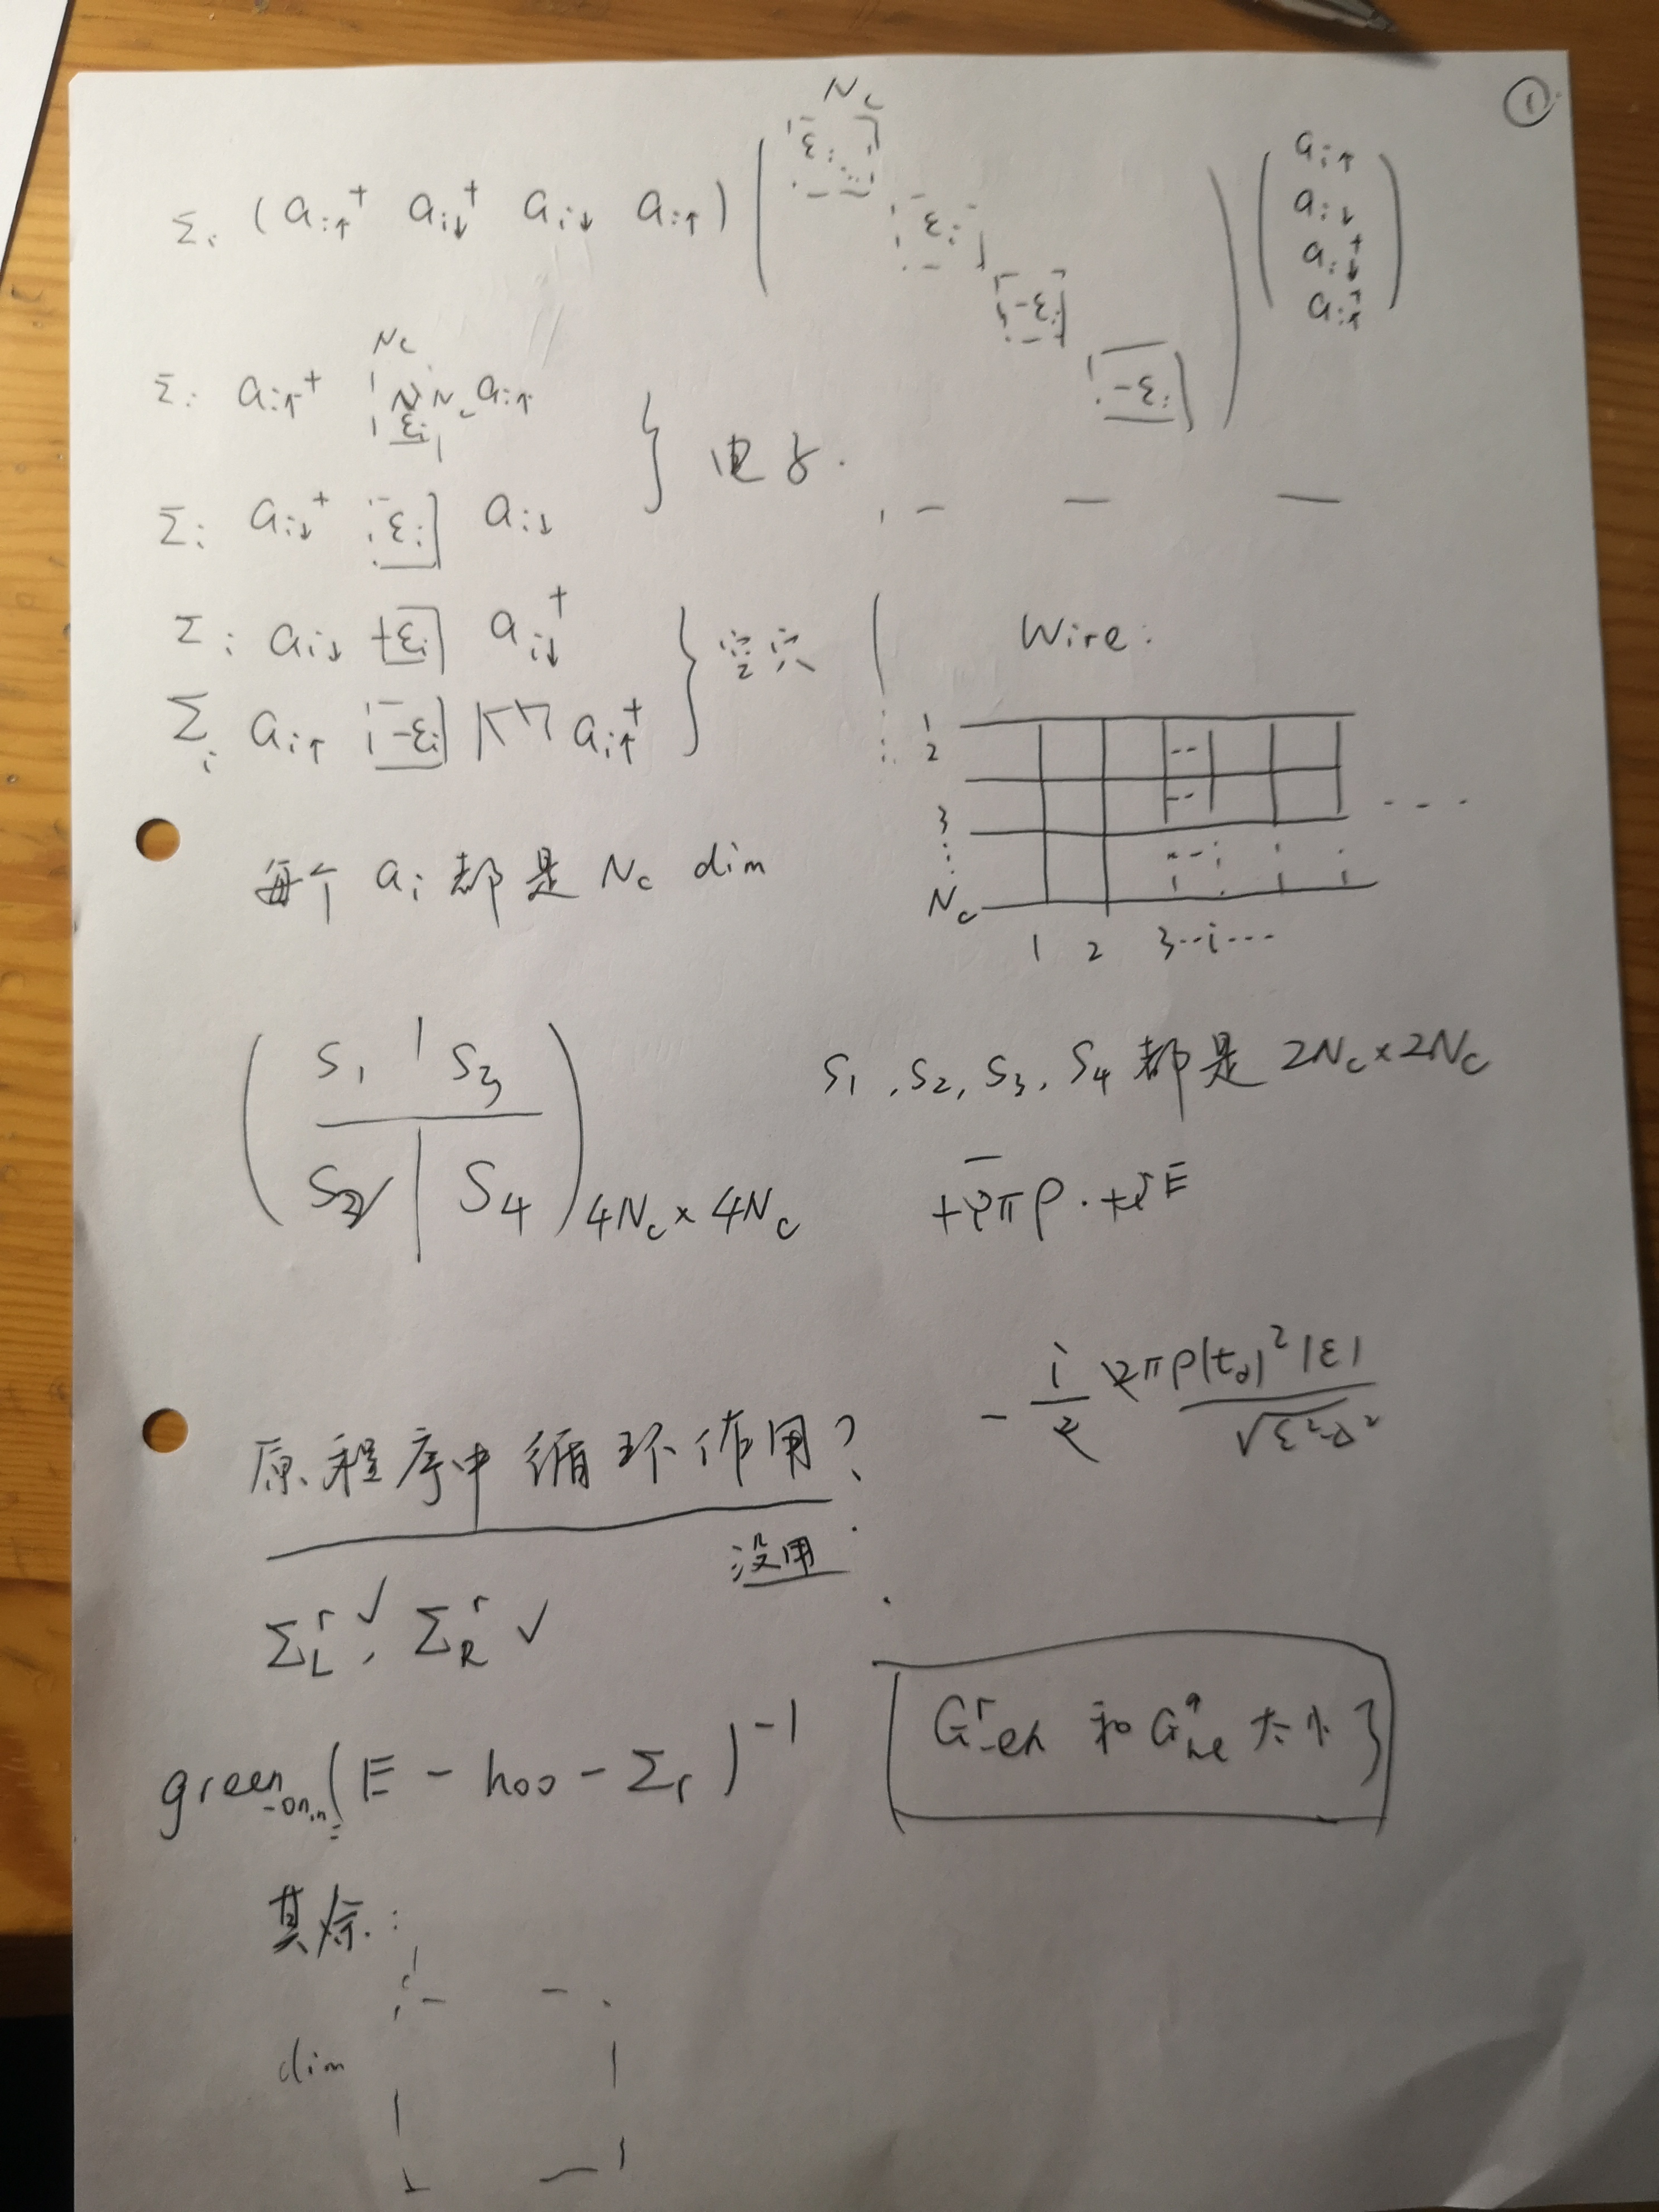 ①
N_c
Σ_i (a_{i↑}^+ a_{i↓}^+ a_{i↓} a_{i↑}) ( ε_i ε_i -ε_i -ε_i ) ( a_{i↑} a_{i↓} a_{i↓}^+ a_{i↑}^+ )
N_c
Σ_i a_{i↑}^+ ε_i N_c a_{i↑}
Σ_i a_{i↓}^+ ε_i a_{i↓}
} 电子.
Σ_i a_{i↓} ε_i a_{i↓}^+
Σ_i a_{i↑} -ε_i a_{i↑}^+
} 空穴
Wire:
1
2
3
⋮
N_c
1 2 3--i---
每个 a_i 都是 N_c dim
( S_1 | S_3
S_2 | S_4 )_{4N_c×4N_c}
S_1, S_2, S_3, S_4 都是 2N_c×2N_c
- i/2 2πρ|t_d|^2 |ε| / √ε^2-Δ^2
原程序中循环作用?
没用
Σ_L^r ✓, Σ_R^r ✓
green (E - h00 - Σ_r)^{-1}
G^r_{eh} 和 G^a_{he} 大小
其余:
dim